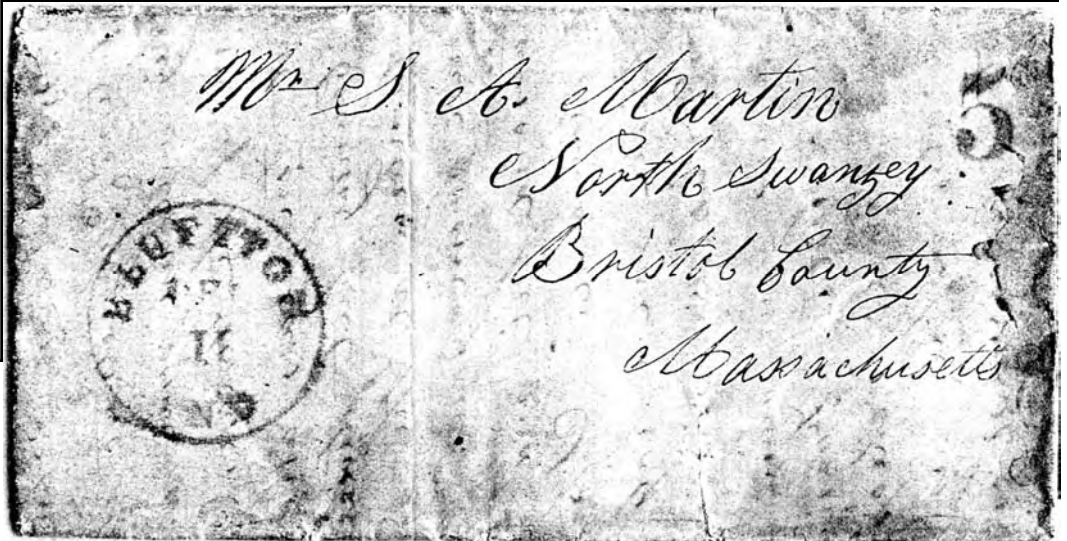 Mr S. A. Martin
North Swanzey
Bristol County
Massachusetts
5
BLUFFTON
11